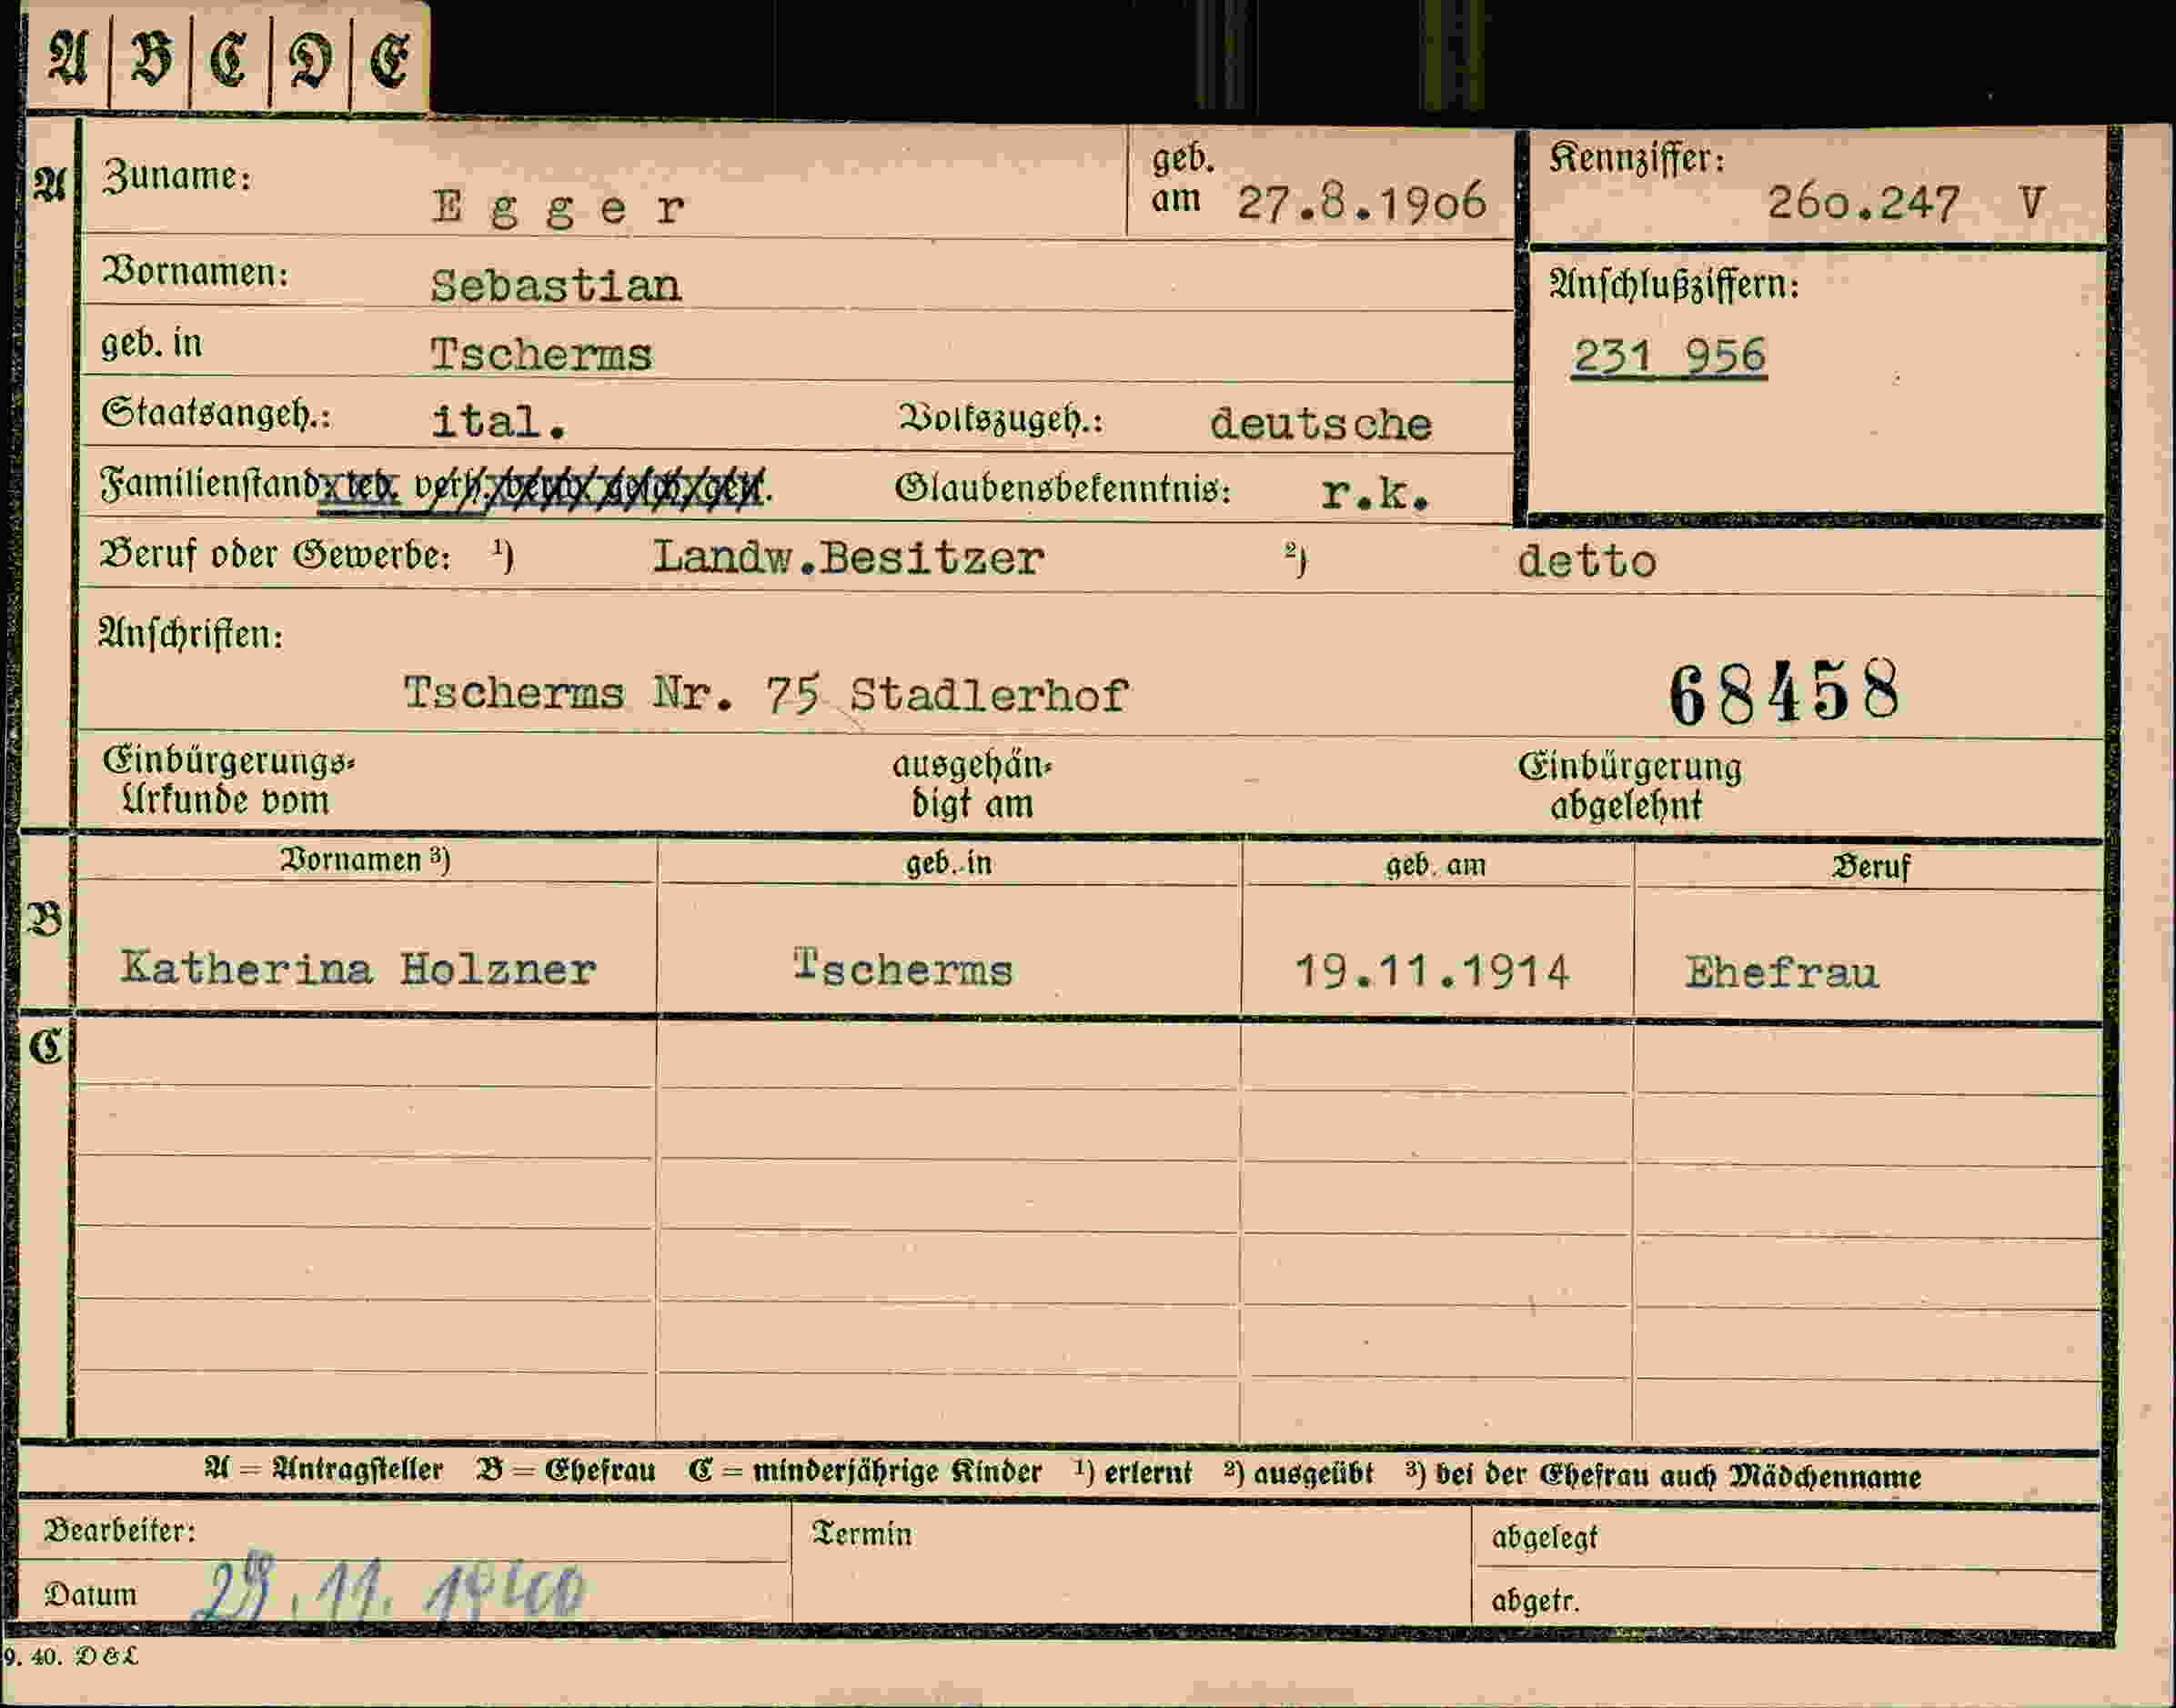 A B C D E
A Zuname: Egger geb. am 27.8.1906 Kennziffer: 260.247 V
Vornamen: Sebastian Anschlußziffern:
geb. in Tscherms 231 956
Staatsangeh.: ital. Volkszugeh.: deutsche
Familienstand led. verh. Glaubensbekenntnis: r.k.
Beruf oder Gewerbe: 1) Landw.Besitzer 2) detto
Anschriften:
Tscherms Nr. 75 Stadlerhof 68458
Einbürgerungs- ausgehän- Einbürgerung
Urkunde vom digt am abgelehnt
Vornamen 3) geb. in geb. am Beruf
B
Katherina Holzner Tscherms 19.11.1914 Ehefrau
C
A = Antragsteller B = Ehefrau C = minderjährige Kinder 1) erlernt 2) ausgeübt 3) bei der Ehefrau auch Mädchenname
Bearbeiter: Termin abgelegt
Datum 29.11.1940 abgetr.
9. 40. D & L